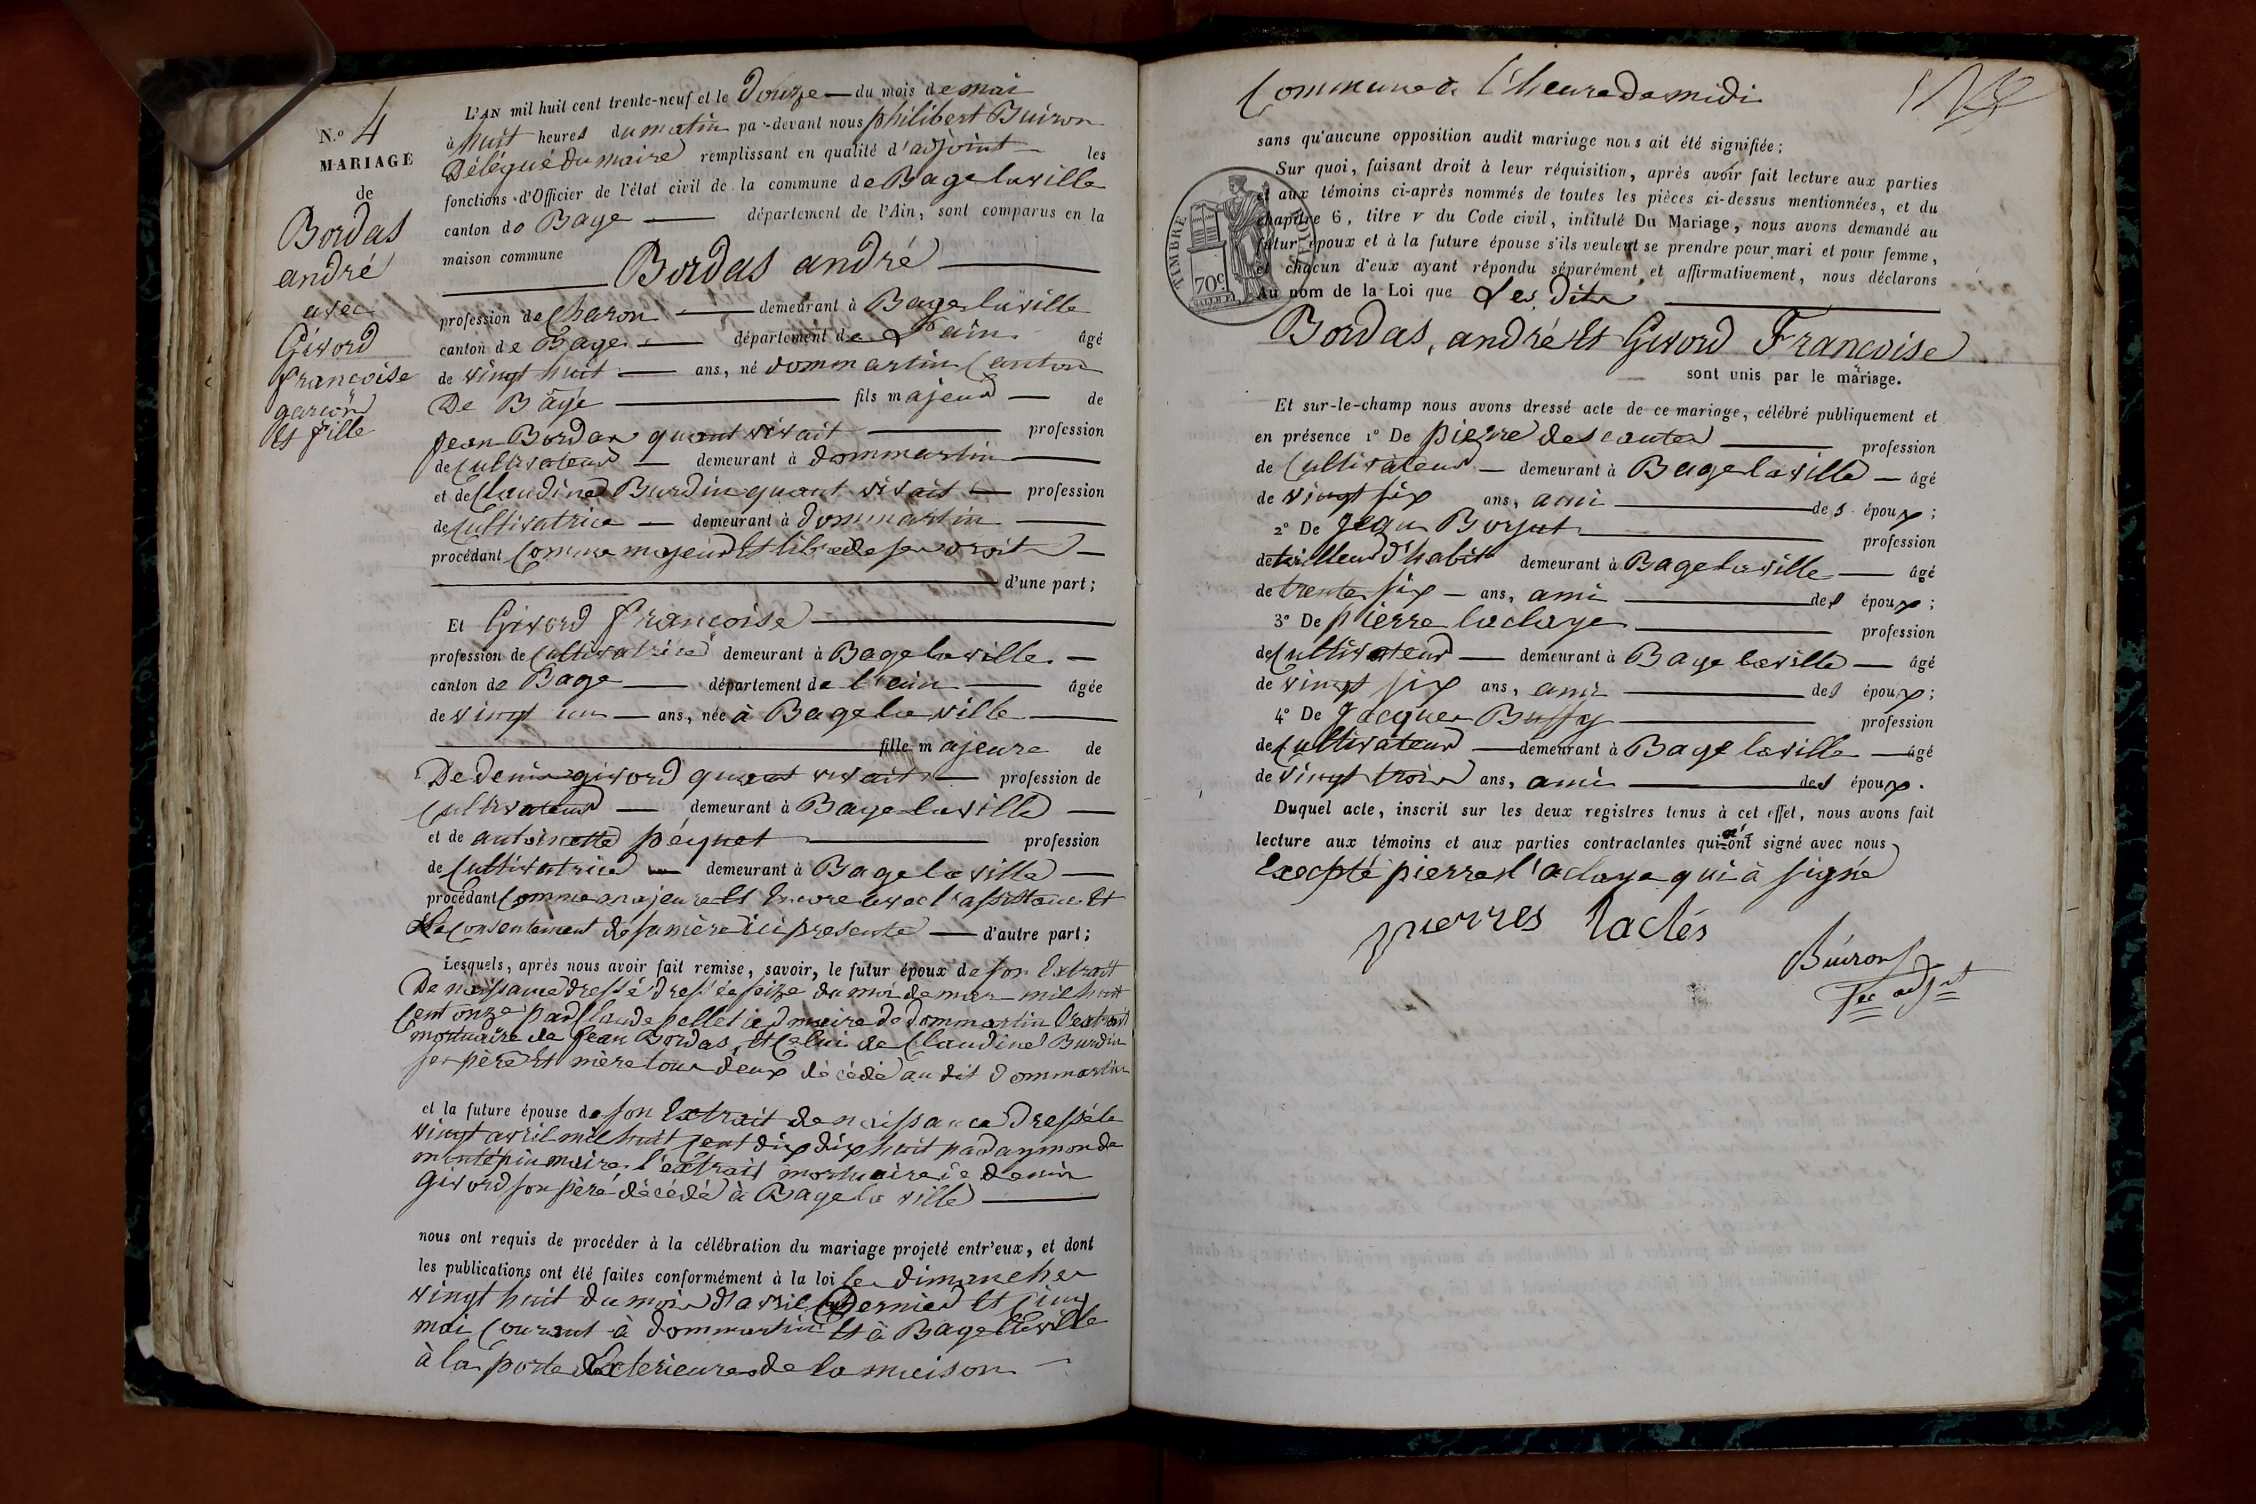 N.º 4
MARIAGE
de
Bordas
andré
avec
Givord
françoise
garcon
Et fille
L'AN mil huit cent trente-neuf et le Douze du mois de mai
à huit heures du matin par-devant nous philibert Buiron
Délégué du maire remplissant en qualité d'adjoint les
fonctions d'Officier de l'état civil de la commune de Bage la ville
canton de Bage département de l'Ain, sont comparus en la
maison commune Bordas andré
profession de Charon demeurant à Bage la ville
canton de Bage département de L'ain âgé
de vingt huit ans, né dommartin Canton
De Bage fils majeur de
jean Bordas quant vivait profession
de Cultivateur demeurant à dommartin
et de Claudine Burdin quant vivait profession
de Cultivatrice demeurant à dommartin
procédant Comme majeur Et libre de ses droits
d'une part;
Et Givord françoise
profession de Cultivatrice demeurant à Bage la ville
canton de Bage département de l'ain âgée
de vingt un ans, née à Bage la ville
fille majeure de
De denis givord quant vivait profession de
Cultivateur demeurant à Bage la ville
et de antoinette péquet profession
de Cultivatrice demeurant à Bage la ville
procédant Comme majeure Et Encore avec l'assistance Et
Le Consentement de sa mère ici presente d'autre part;
Lesquels, après nous avoir fait remise, savoir, le futur époux de son Extrait
De naissance dressé dressé le seize du moi de mars mil huit
Cent onze par Claude pelletie maire de dommartin l'extrait
mortuaire de jean Bordas, Et Celui de Claudine Burdin
ses père Et mère tous deux décédé au dit dommartin
et la future épouse de son Extrait de naissance Dressé le
vingt avril mil huit Cent dix dix huit par daymon de
montépin maire l'extrait mortuaire de denis
Givord son père décédé à Bage la ville
nous ont requis de procéder à la célébration du mariage projeté entr'eux, et dont
les publications ont été faites conformément à la loi les dimanches
vingt huit du mois d'avril dernier Et Cinq
mai Courant à dommartin Et à Bage la ville
à la porte Exterieure de la maison
Commune à l'heure de midi
sans qu'aucune opposition audit mariage nous ait été signifiée;
Sur quoi, faisant droit à leur réquisition, après avoir fait lecture aux parties
et aux témoins ci-après nommés de toutes les pièces ci-dessus mentionnées, et du
chapitre 6, titre V du Code civil, intitulé Du Mariage, nous avons demandé au
futur époux et à la future épouse s'ils veulent se prendre pour mari et pour femme,
et chacun d'eux ayant répondu séparément et affirmativement, nous déclarons
Au nom de la Loi que Les Dits
TIMBRE ROYAL
70c
Bordas, andré Et Givord Francoise
sont unis par le mariage.
Et sur-le-champ nous avons dressé acte de ce mariage, célébré publiquement et
en présence 1º De pierre descoutes profession
de Cultivateur demeurant à Bage la ville âgé
de vingt six ans, ami des époux;
2º De jean Borjut profession
de tailleur d'habit demeurant à Bage la ville âgé
de trente six ans, ami des époux;
3º De pierre laclaye profession
de Cultivateur demeurant à Bage la ville âgé
de vingt six ans, ami des époux;
4º De jacques Buffy profession
de Cultivateur demeurant à Bage la ville âgé
de vingt trois ans, ami des époux.
Duquel acte, inscrit sur les deux registres tenus à cet effet, nous avons fait
lecture aux témoins et aux parties contractantes qui ont signé avec nous
Excepté pierre l'aclaye qui à signé
pierres laclés
Buiron
adjt